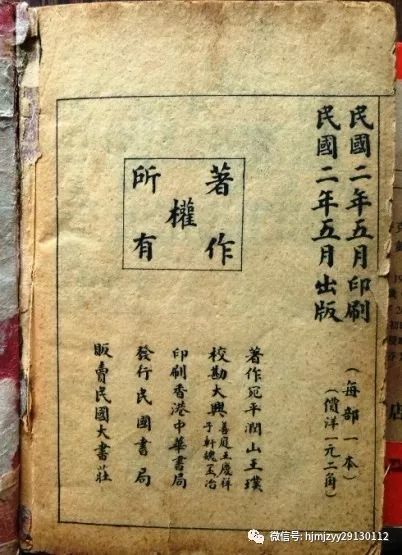 民國二年五月印刷
民國二年五月出版
(每部一本)
(價洋一元二角)
著作
權
所有
著作宛平潤山王璞
校勘大興
王慶祥
軒魏
印刷香港中華書局
發行民國書局
販賣民國大書莊
店
微信号: hjmjzyy29130112